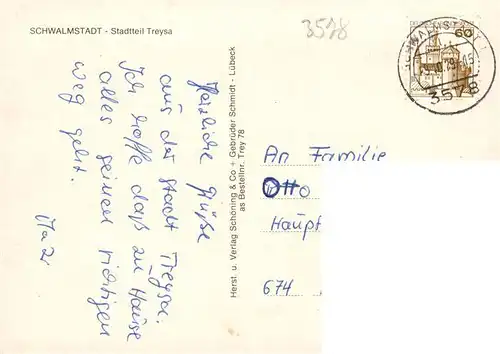 SCHWALMSTADT - Stadtteil Treysa
3578
60
SCHWALMSTADT 1
3578
Herzliche Grüße
aus der Stadt Treysa.
Ich hoffe daß zu Hause
alles seinen richtigen
Weg geht.
Herst. u. Verlag Schöning & Co + Gebrüder Schmidt - Lübeck
as Bestellnr. Trey 78
An Familie
Otto
Haupt
674